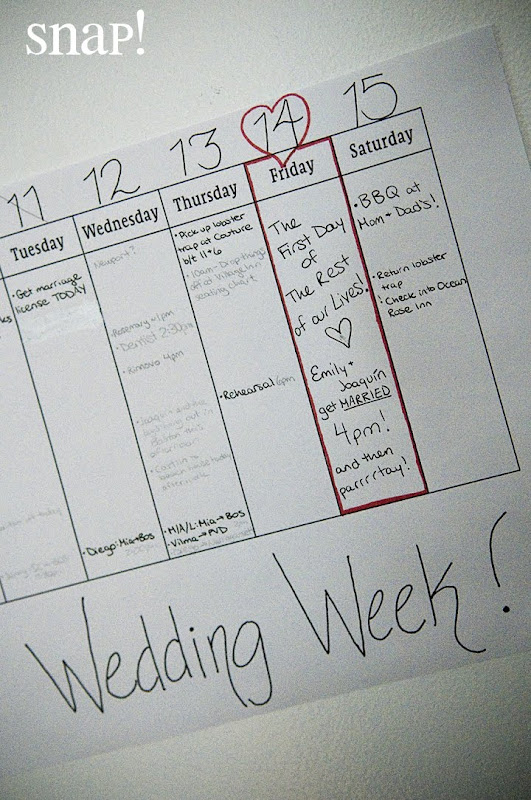 snap!
11
12
13
14
15
Tuesday
Wednesday
Thursday
Friday
Saturday
• Get marriage
license TODAY
Newport?
Rosemary 1pm
• Dentist 2:30pm
• Rimovo 4pm
this
afternoon
• Caitlin's
• Diego: Mia→Bos
• Pick up lobster
trap at Couture
b/t 11+6
• 10am - Drop things
off at Village Inn
seating chart
• Rehearsal 6pm
• M/A/L: Mia→Bos
• Vilma→PVD
The
First Day
of
The Rest
of our Lives!
Emily +
Joaquín
get MARRIED
4pm!
and then
parrrrtay!
• BBQ at
Mom + Dad's!
• Return lobster
trap
• Check into Ocean
Rose Inn
Wedding Week!